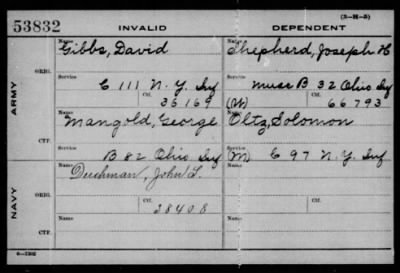 (3-H-5)
53832 INVALID DEPENDENT
Name Gibbs, David Name Shepherd, Joseph H
ORIG. Service C 111 N. Y. Inf Service Musc B 32 Ohio Inf
Ctf. 35169 (M) Ctf. 66793
ARMY
Name Mangold, George Name Oltz, Solomon
CTF. Service B 82 Ohio Inf Service (M) C 97 N. Y. Inf
NAVY
ORIG. Name John Name
Ctf. 28408 Ctf.
CTF. Name Name